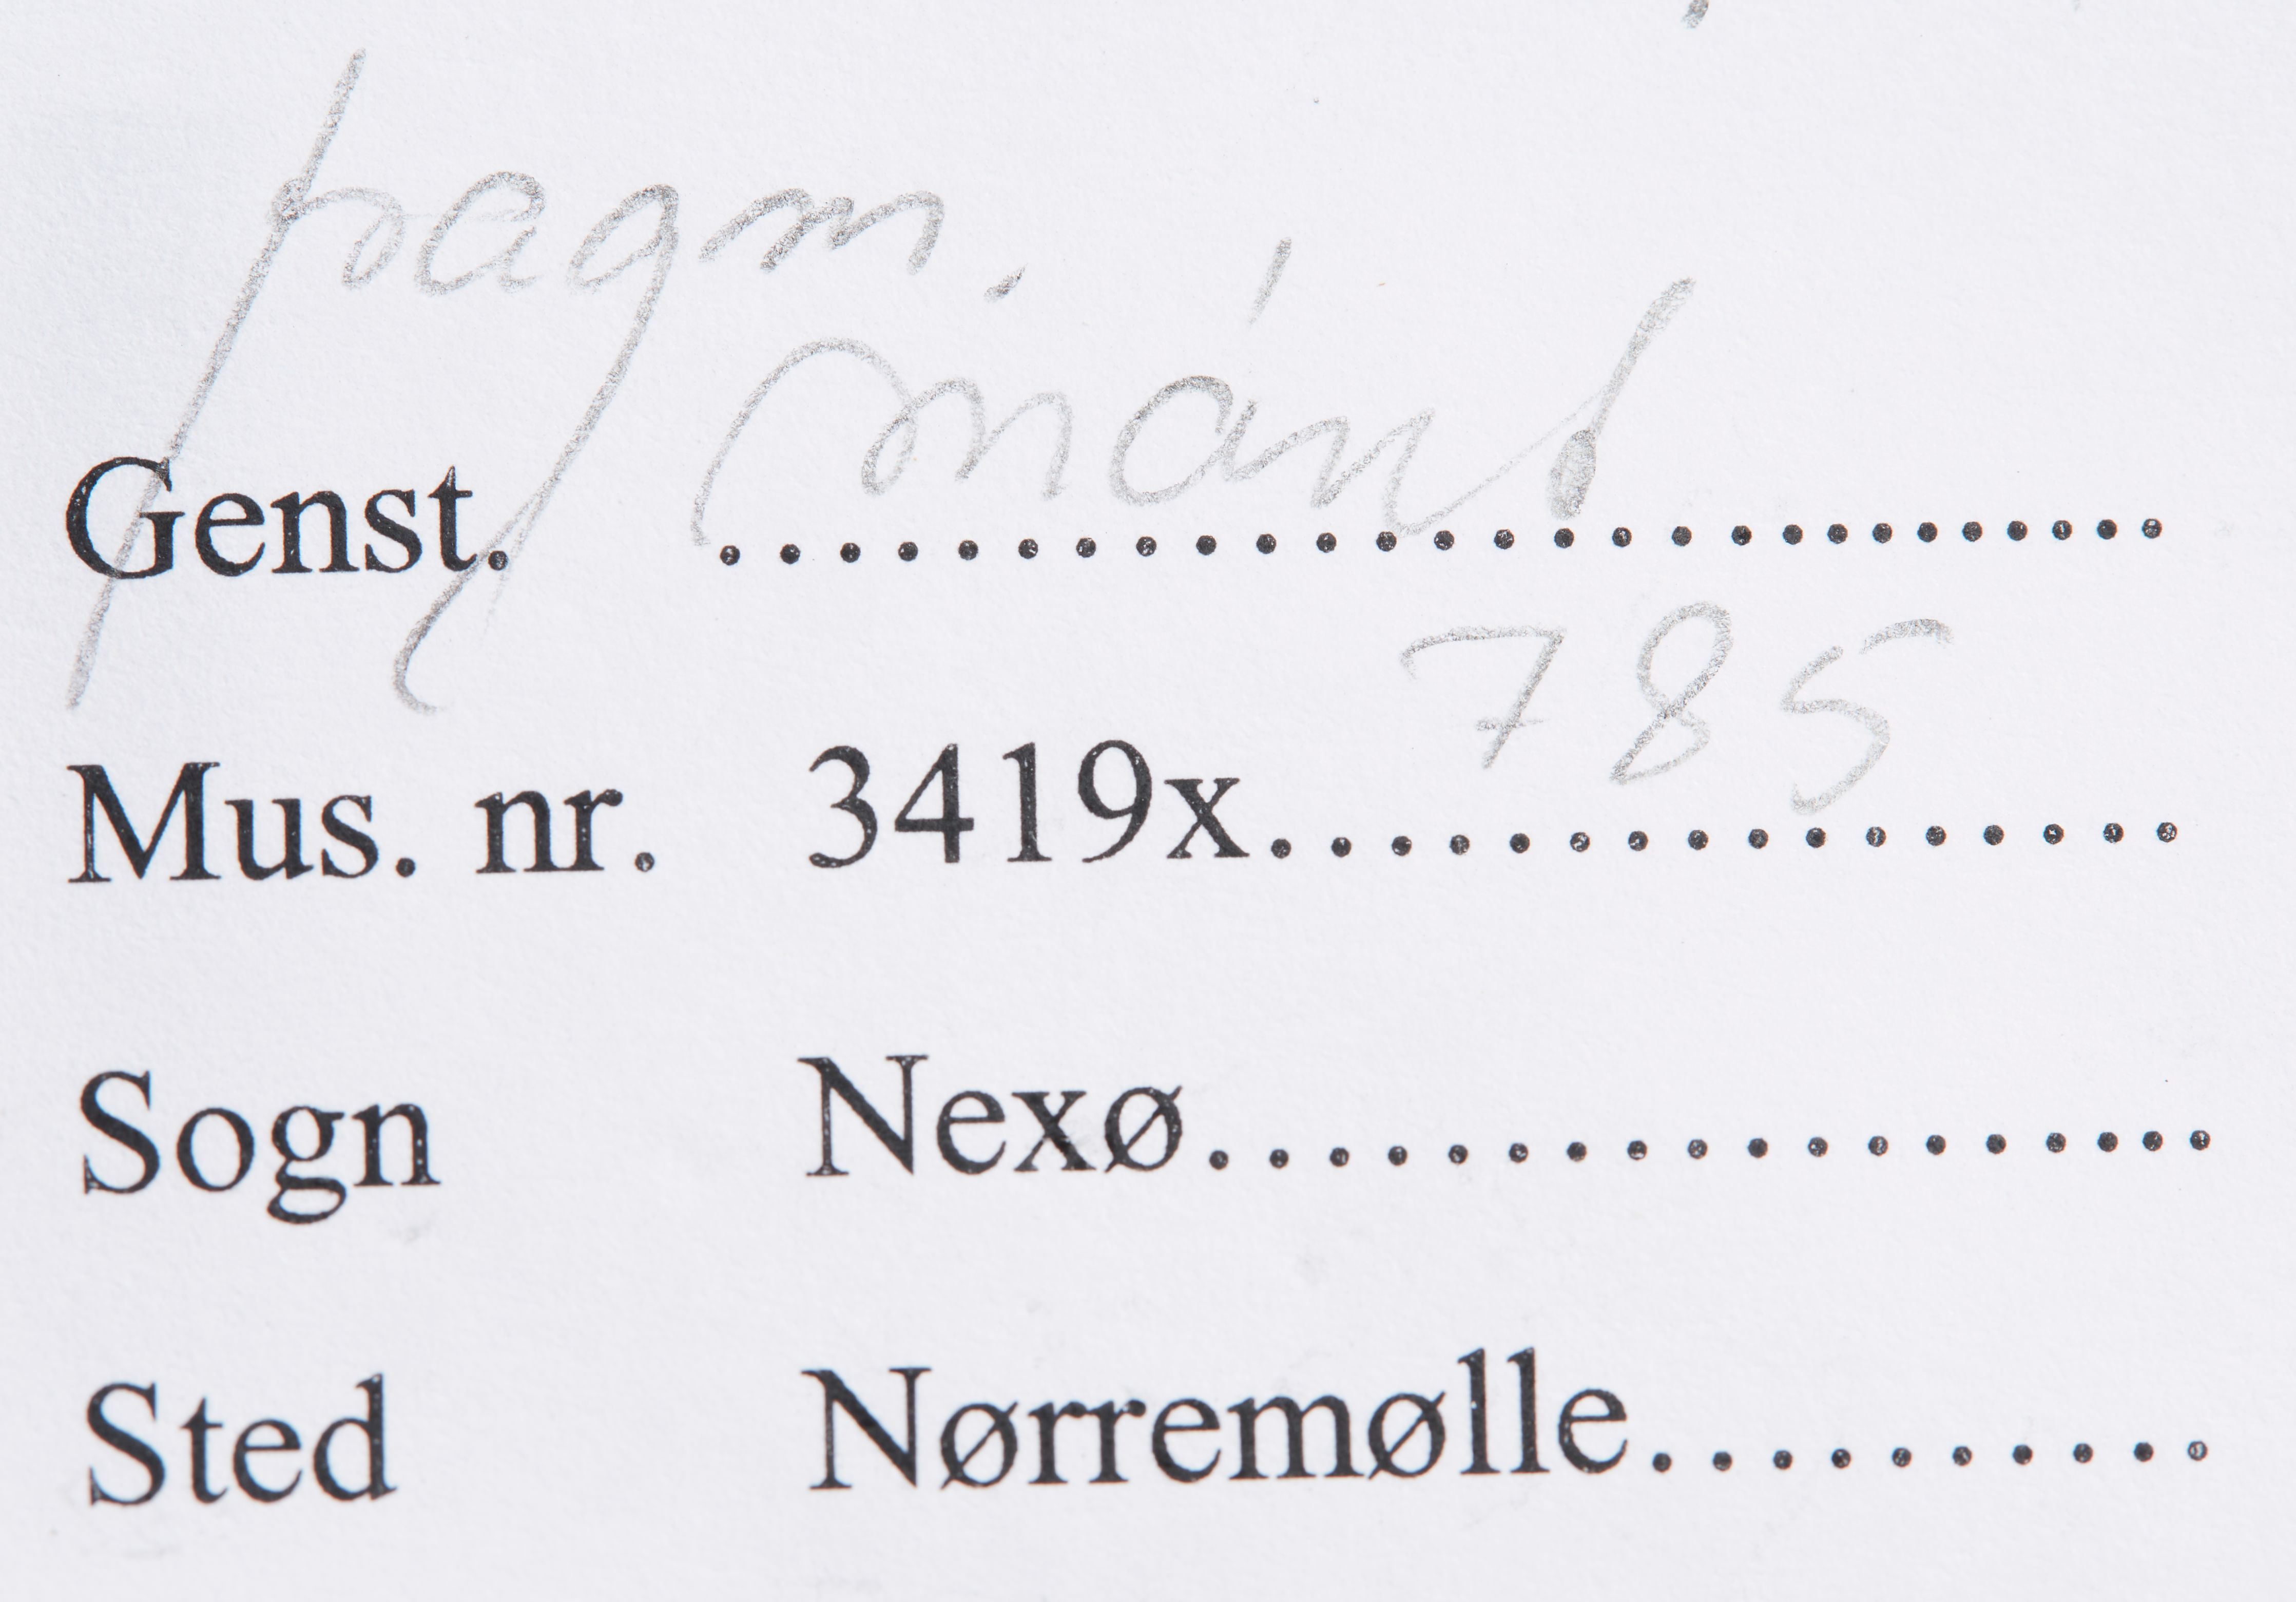 fragm.
Genst. mønt
785
Mus. nr. 3419x
Sogn Nexø
Sted Nørremølle